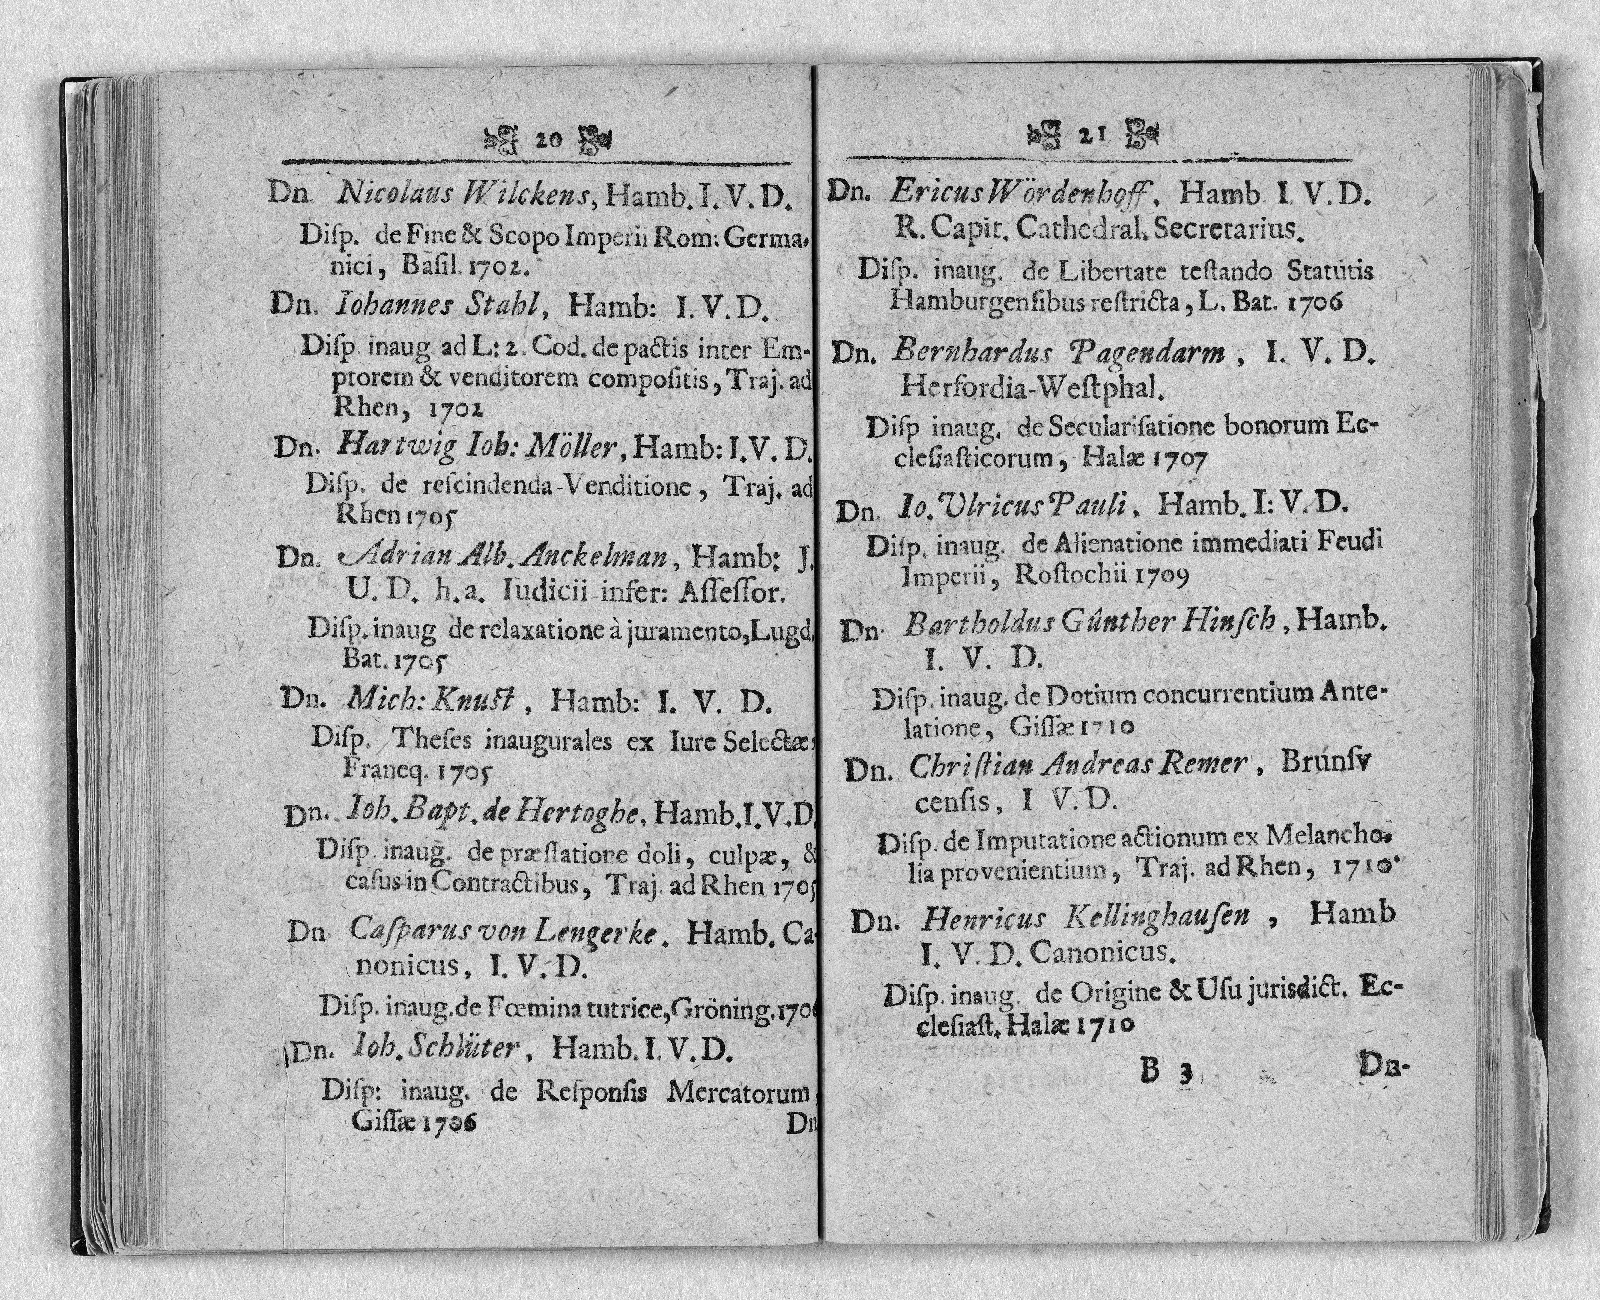 20
Dn Nicolaus Wilckens, Hamb. I. V. D.
Diſp. de Fine & Scopo Imperii Rom: Germa-
nici, Baſil. 1702.
Dn. Iohannes Stahl, Hamb: I. V. D.
Diſp inaug ad L: 2. Cod. de pactis inter Em-
ptorem & venditorem compoſitis, Traj. ad
Rhen, 1702
Dn. Hartwig Ioh: Möller, Hamb: I. V. D.
Diſp. de reſcindenda-Venditione, Traj. ad
Rhen 1705
Dn. Adrian Alb. Anckelman, Hamb: J.
U. D. h. a. Iudicii infer: Aſſeſſor.
Diſp. inaug de relaxatione à juramento, Lugd.
Bat. 1705
Dn. Mich: Knuſt, Hamb: I. V. D.
Diſp. Theſes inaugurales ex Iure Selectæ:
Franeq. 1705
Dn. Ioh. Bapt. de Hertoghe. Hamb. I. V. D.
Diſp. inaug. de præſtatione doli, culpæ, &
caſus in Contractibus, Traj. ad Rhen 1705
Dn Caſparus von Lengerke. Hamb. Ca-
nonicus, I. V. D.
Diſp. inaug. de Fœmina tutrice, Gröning. 1706
Dn. Ioh. Schlüter, Hamb. I. V. D.
Diſp: inaug. de Reſponſis Mercatorum
Giſſæ 1706
Dn
21
Dn. Ericus Wördenhoff. Hamb I. V. D.
R. Capit. Cathedral. Secretarius.
Diſp. inaug. de Libertate teſtando Statutis
Hamburgenſibus reſtricta, L. Bat. 1706
Dn. Bernhardus Pagendarm, I. V. D.
Herfordia-Weſtphal.
Diſp inaug. de Seculariſatione bonorum Ec-
cleſiaſticorum, Halæ 1707
Dn. Io. Ulricus Pauli, Hamb. I: V. D.
Diſp. inaug. de Alienatione immediati Feudi
Imperii, Roſtochii 1709
Dn. Bartholdus Gûnther Hinſch, Hamb.
I. V. D.
Diſp. inaug. de Dotium concurrentium Ante-
latione, Giſſæ 1710
Dn. Chriſtian Andreas Remer, Brunſv
cenſis, I V. D.
Diſp. de Imputatione actionum ex Melancho-
lia provenientium, Traj. ad Rhen, 1710
Dn. Henricus Kellinghauſen, Hamb
I. V. D. Canonicus.
Diſp. inaug. de Origine & Uſu jurisdict. Ec-
cleſiaſt. Halæ 1710
B 3
Dn-